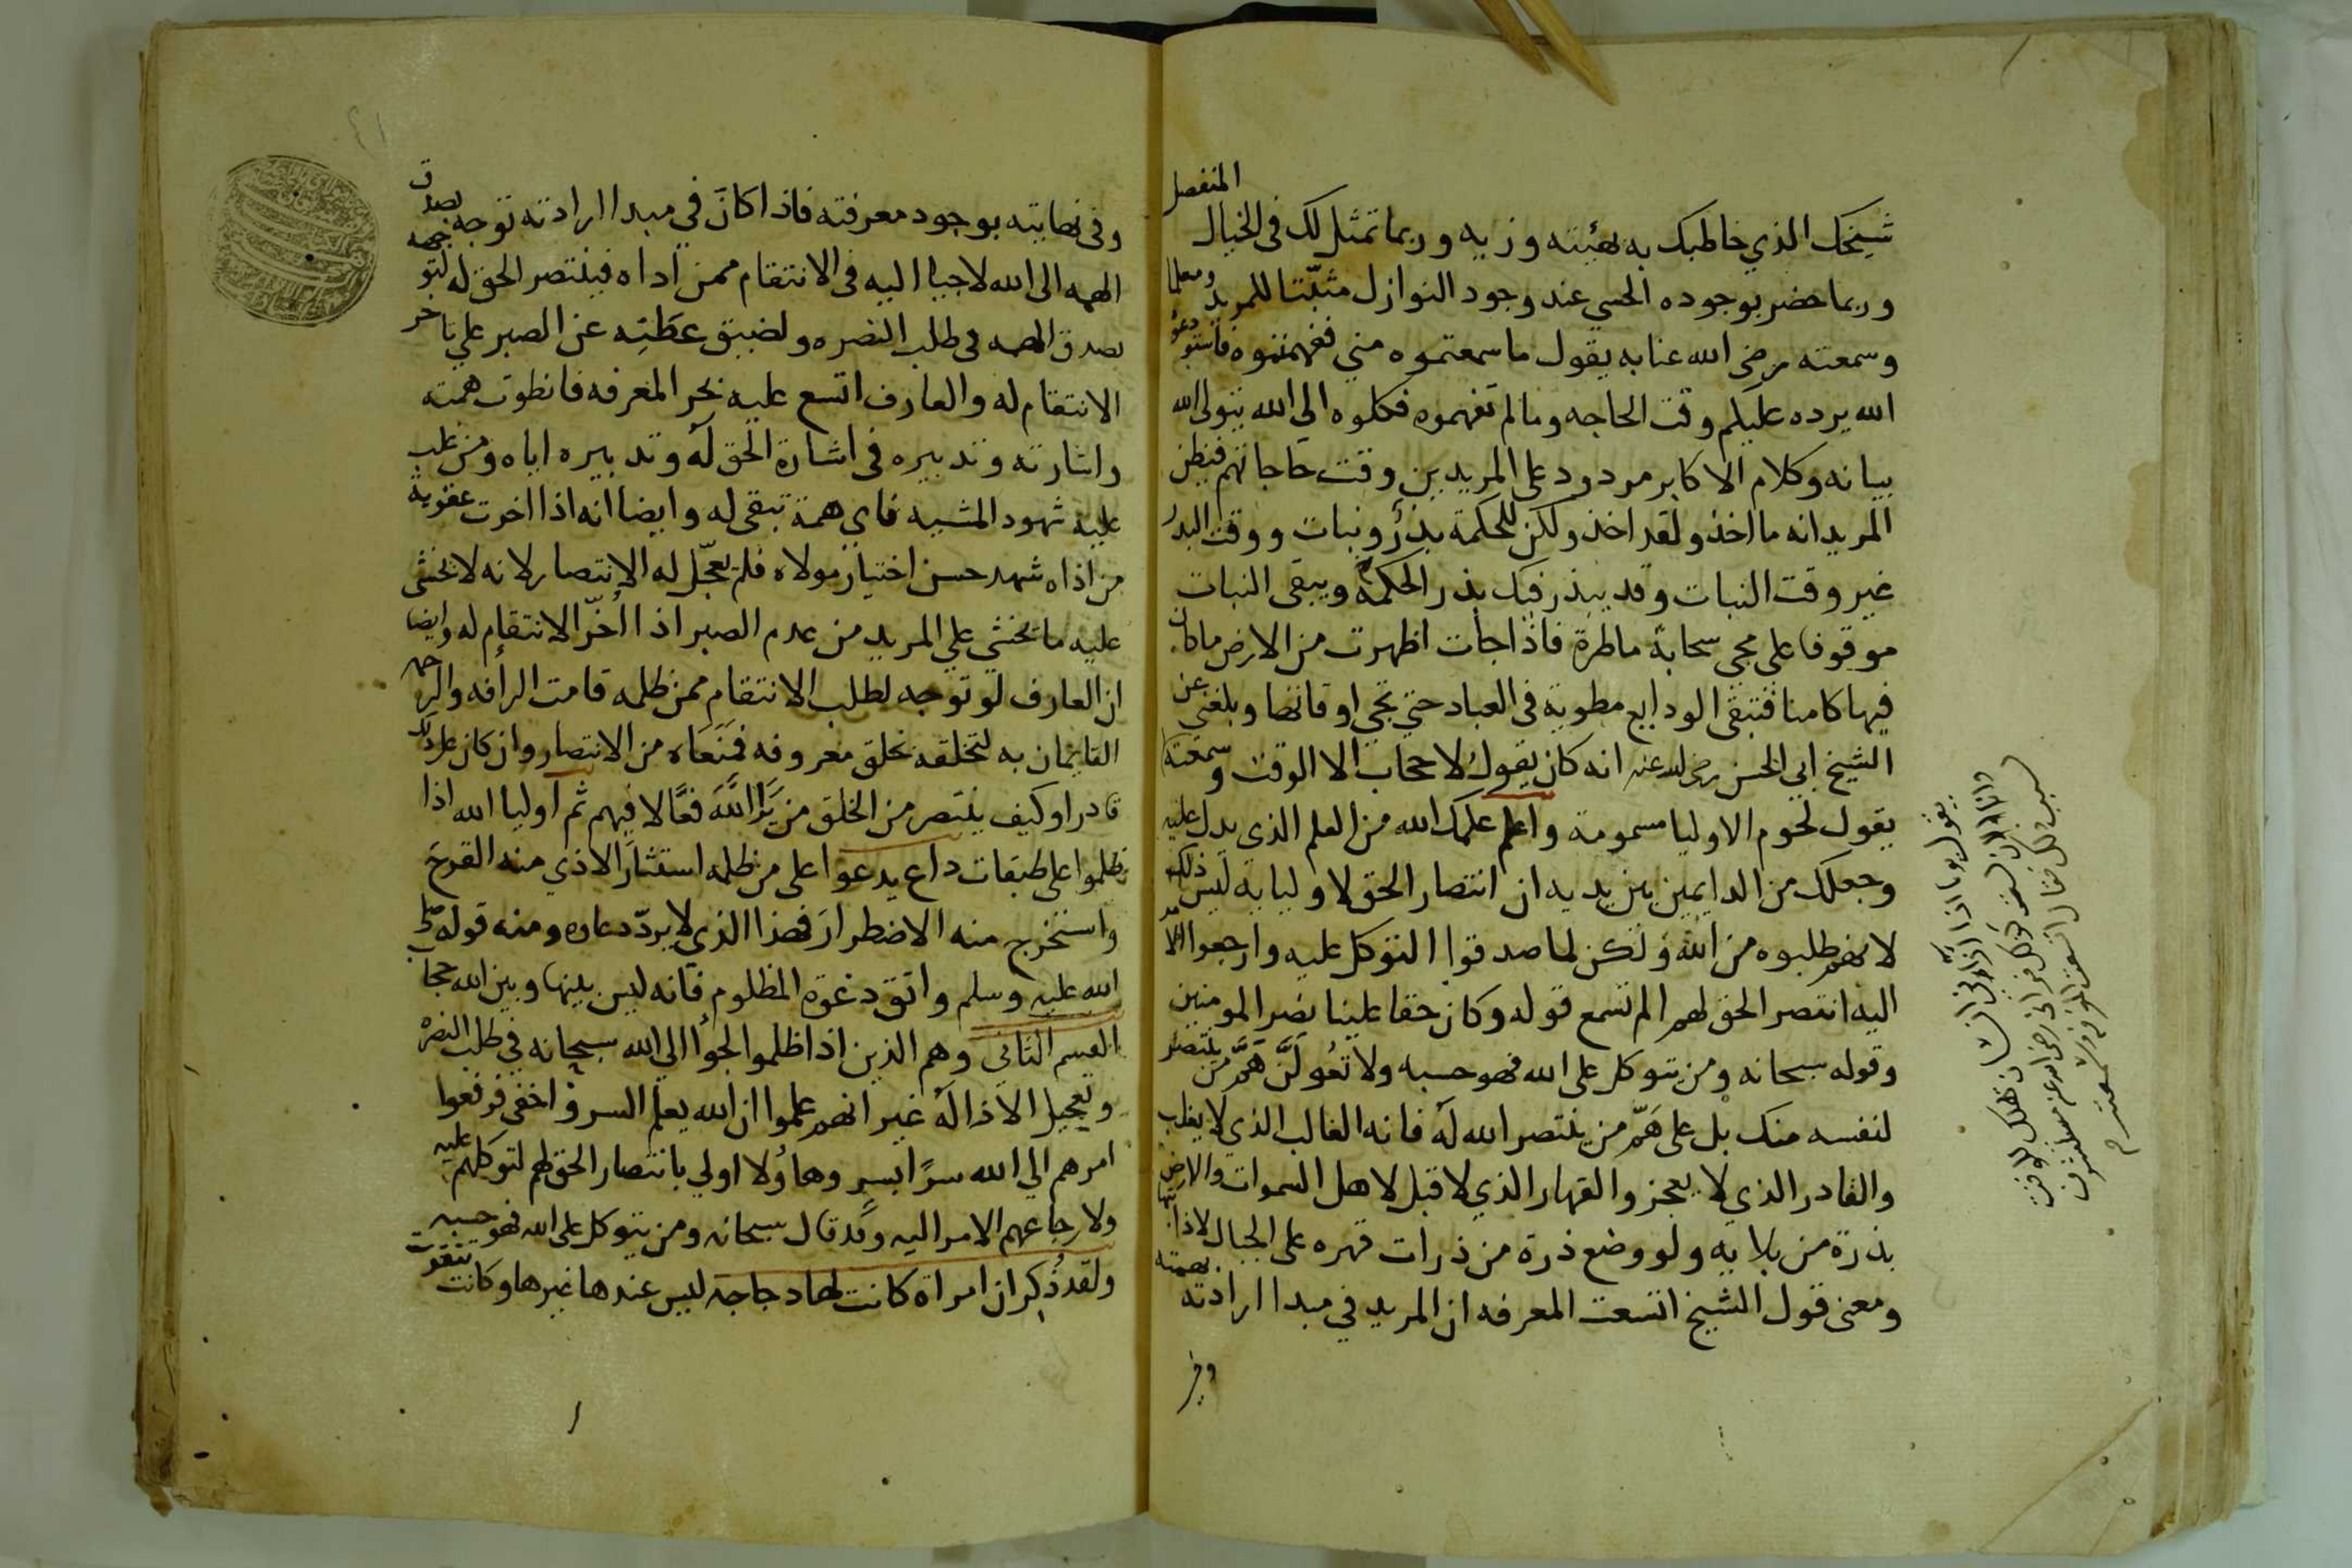 شيخك الذي خاطبك به بهيئته وزيه وربما تمثل لك في الخيال المنفصل
وربما حضر بوجوده الحسي عند وجود النوازل مثبّتا للمريد ومعلما
وسمعته رضي الله عنا به يقول ما سمعتموه مني ففهمتموه فاستودعوه
الله يرده عليكم وقت الحاجه وما لم تفهموه فكلوه الي الله يتولى الله
بيانه وكلام الاكابر مردود على المريدين وقت حاجاتهم فيظن
المريد انه ما اخذ ولقد اخذ ولكن للحكمة بذرٌ ونبات ووقت البذر
غير وقت النبات وقد يبذر فيك بذر الحكمة ويبقى النبات
موقوفا على مجي سحابة ماطرة فاذا جأت اظهرت من الارض ما كان
فيها كامنا فتبقى الودايع مطوية في العباد حتي تجي اوقاتها وبلغني عن
الشيخ ابي الحسن رضي الله عنه انه كان يقول لا حجاب الا الوقت وسمعته
يقول لحوم الاوليا مسمومة واعلم علمك الله من العلم الذي يدل عليه
وجعلك من الدايمين بين يديه ان انتصار الحق لاوليايه ليس ذلك
لانهم طلبوه من الله ولكن لما صدقوا التوكل عليه وارجعوا الامر
اليه انتصر الحق لهم الم تسمع قوله وكان حقا علينا نصر المومنين
وقوله سبحانه ومن يتوكل على الله فهو حسبه ولا تعُولَنَّ هَمَّ من ينتصر
لنفسه منك بل على هَمّ من ينتصر الله له فانه الغالب الذي لا يغلب
والقادر الذي لا يعجز والقهار الذي لا قبل لاهل السموات والارض
بذرة من بلايه ولو وضع ذرة من ذرات قهره على الجبال لاذابها
ومعنى قول الشيخ اتسعت المعرفه ان المريد في مبدا ارادته بهمته
وفي
وفي نهايته بوجود معرفته فاذا كان في مبدا ارادته توجه بصدق
الهمه الى الله لاجيا اليه في الانتقام ممن اداه فينتصر الحق له لتوجهه
بصدق الهمه في طلب النصره ولضيق عطنِه عن الصبر علي تاخر
الانتقام له والعارف اتسع عليه بحر المعرفه فانطوت همته
واشارته وتدبيره في اشارة الحق له وتدبيره اياه ومن غلب
عليه شهود المشيه فاي همة تبقى له وايضا انه اذا اخرت عقوبة
من اذاه شهد حسن اختيار مولاه فلم يعجّل له الانتصار لانه لا يخشى
عليه ما يخشي علي المريد من عدم الصبر اذا اُخّر الانتقام له وايضا
ان العارف لو توجه لطلب الانتقام ممن ظلمه قامت الرأفه والرحمه
القايمان به لتخلقه بخلق معروفه فمنعاه من الانتصار وان كان على ذلك
قادرا وكيف ينتصر من الخلق من يَرَا اللّهَ فعّالا فيهم ثم اوليا الله اذا
ظلموا على طبقات داع يدعوا على من ظلمه استثارَ الاذي منه القرحَ
واستخرج منه الاضطرارَ فهذا الذي لا يردّ دعاوه ومنه قوله صلى
الله عليه وسلم واتق دعوة المظلوم فانه ليس بينها وبين الله حجاب
القسم الثاني وهم الذين اذا ظلموا لجوأ الي الله سبحانه في طلب النصرْ
وتعجيل الاذا لهُ غير انهم علموا ان الله يعلم السر واخفي فرفعوا
امرهم الي الله سرًا بسرٍ وهاوُلا اولي بانتصار الحق لهم لتوكلهم عليه
ولارجاعهم الامر اليه وقد قال سبحانه ومن يتوكل على الله فهو حسبه
ولقد ذُكِر ان امراة كانت لها دجاجة ليس عندها غيرها وكانت تتقوت